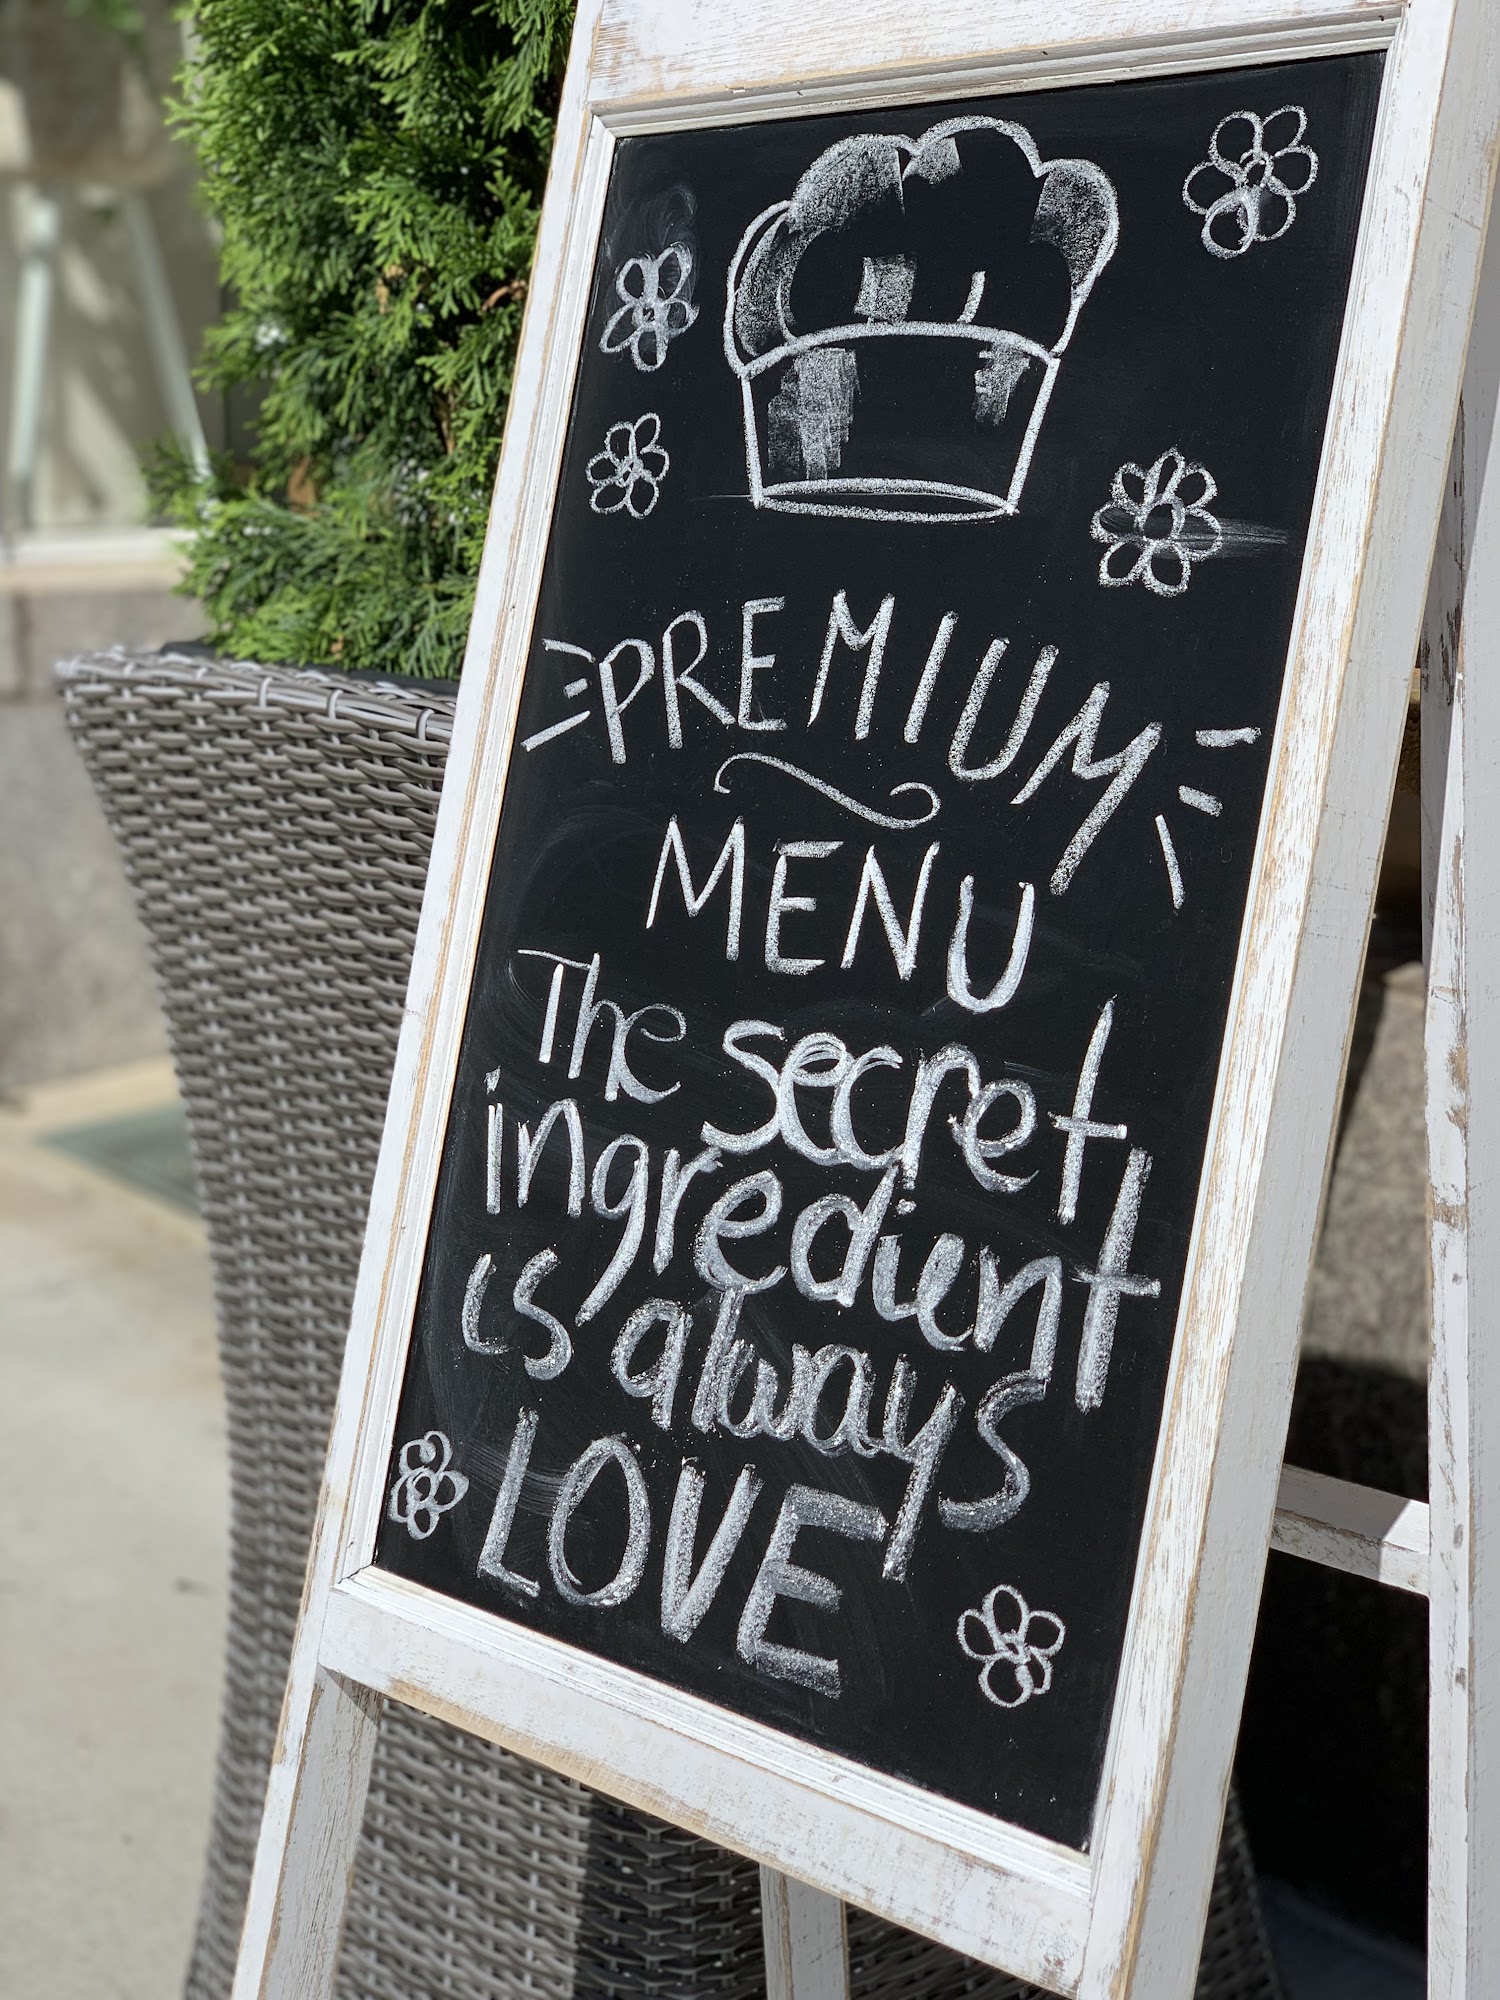 PREMIUM
MENU
The secret
ingredient
is always
LOVE